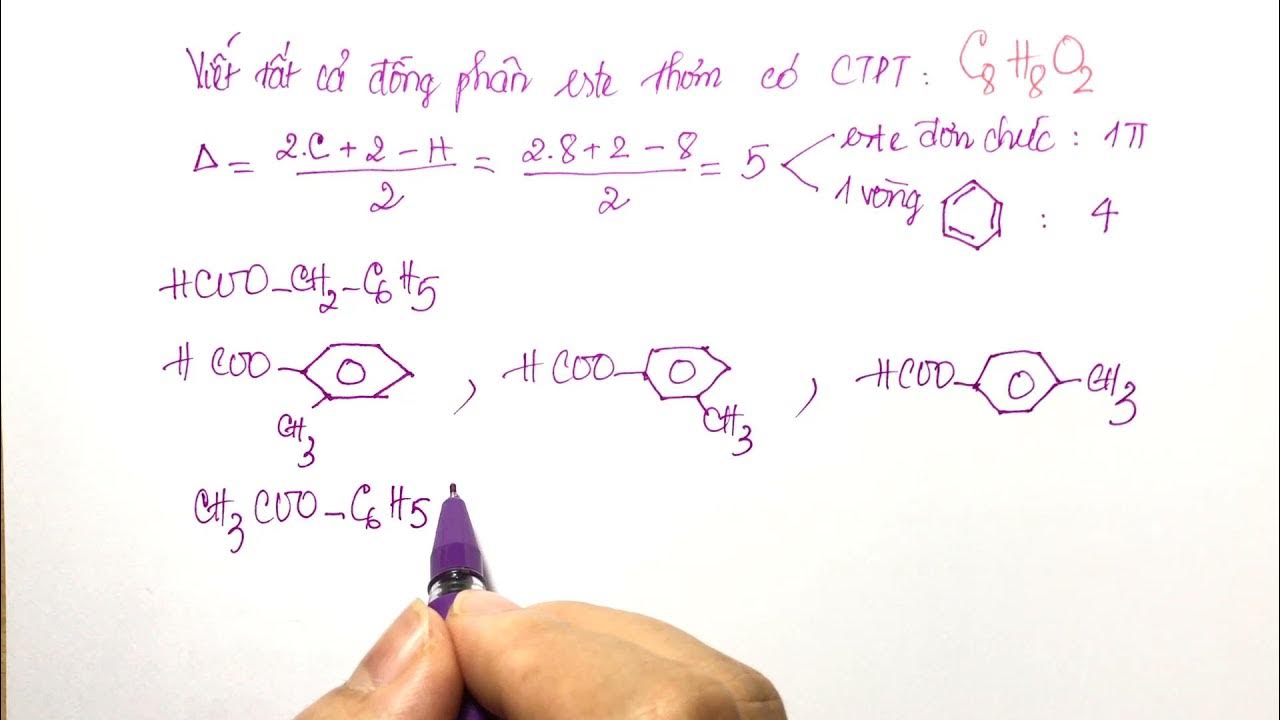 Viết tất cả đồng phân este thơm có CTPT: C₈H₈O₂
Δ = (2.C + 2 − H)/2 = (2.8 + 2 − 8)/2 = 5
este đơn chức : 1π
1 vòng : 4
HCOO–CH₂–C₆H₅
HCOO– CH₃ , HCOO– CH₃ , HCOO– –CH₃
CH₃COO–C₆H₅